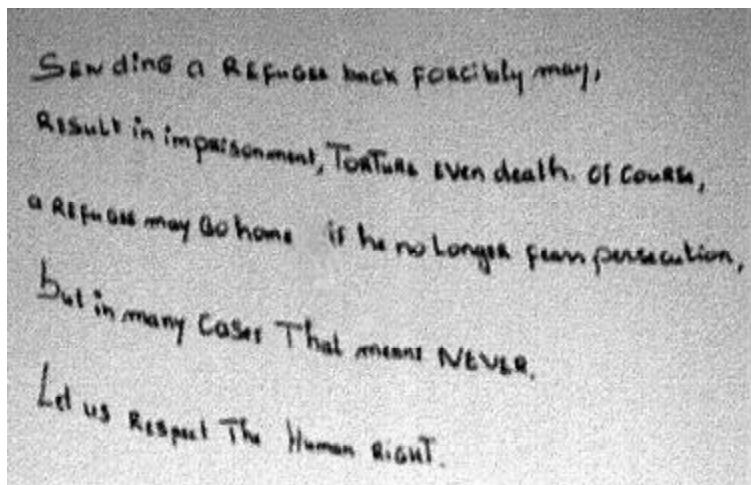 Sending a Refugee back Forcibly may,
Result in imprisonment, Torture even death. Of Course,
a Refugee may Go home if he no Longer fears persecution,
but in many Cases That means NEVER.
Let us Respect The Human RIGHT.